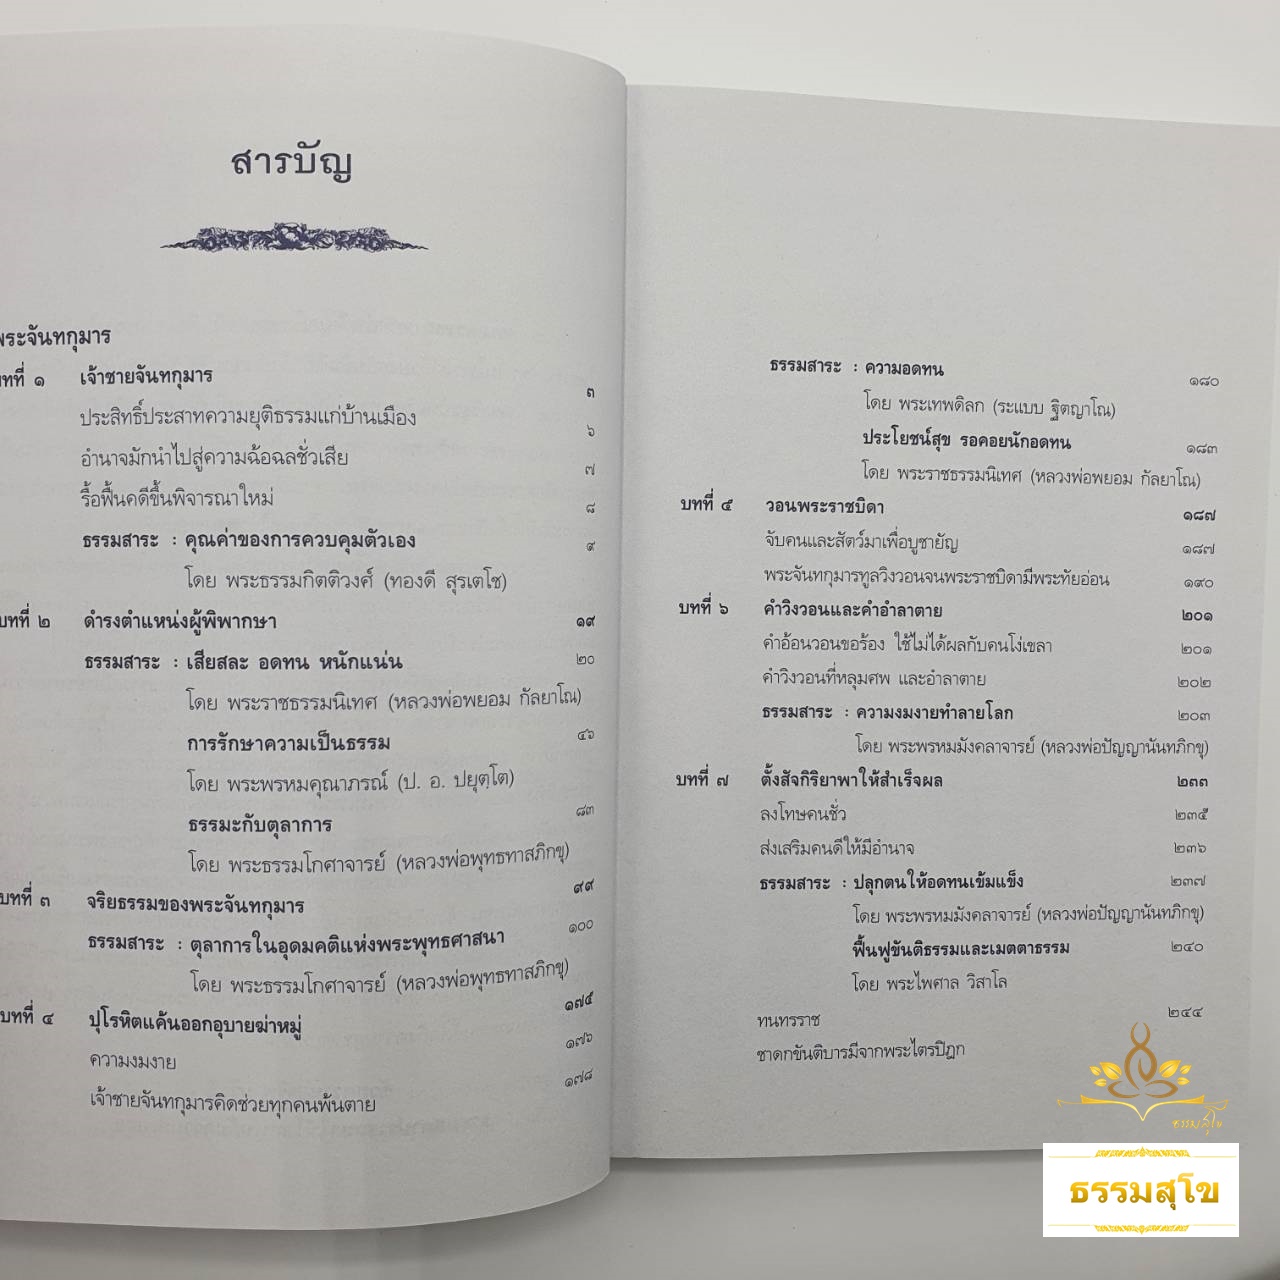 สารบัญ
พระจันทกุมาร
บทที่ ๑ เจ้าชายจันทกุมาร ๓
ประสิทธิ์ประสาทความยุติธรรมแก่บ้านเมือง ๖
อำนาจมักนำไปสู่ความฉ้อฉลชั่วเสีย ๗
รื้อฟื้นคดีขึ้นพิจารณาใหม่ ๘
ธรรมสาระ : คุณค่าของการควบคุมตัวเอง ๙
โดย พระธรรมกิตติวงศ์ (ทองดี สุรเตโช)
บทที่ ๒ ดำรงตำแหน่งผู้พิพากษา ๑๙
ธรรมสาระ : เสียสละ อดทน หนักแน่น ๒๐
โดย พระราชธรรมนิเทศ (หลวงพ่อพยอม กัลยาโณ)
การรักษาความเป็นธรรม ๔๖
โดย พระพรหมคุณาภรณ์ (ป. อ. ปยุตฺโต)
ธรรมะกับตุลาการ ๘๓
โดย พระธรรมโกศาจารย์ (หลวงพ่อพุทธทาสภิกขุ)
บทที่ ๓ จริยธรรมของพระจันทกุมาร ๙๙
ธรรมสาระ : ตุลาการในอุดมคติแห่งพระพุทธศาสนา ๑๐๐
โดย พระธรรมโกศาจารย์ (หลวงพ่อพุทธทาสภิกขุ)
บทที่ ๔ ปุโรหิตแค้นออกอุบายฆ่าหมู่ ๑๗๕
ความงมงาย ๑๗๖
เจ้าชายจันทกุมารคิดช่วยทุกคนพ้นตาย ๑๗๘
ธรรมสาระ : ความอดทน ๑๘๐
โดย พระเทพดิลก (ระแบบ ฐิตญาโณ)
ประโยชน์สุข รอคอยนักอดทน ๑๘๓
โดย พระราชธรรมนิเทศ (หลวงพ่อพยอม กัลยาโณ)
บทที่ ๕ วอนพระราชบิดา ๑๘๗
จับคนและสัตว์มาเพื่อบูชายัญ ๑๘๗
พระจันทกุมารทูลวิงวอนจนพระราชบิดามีพระทัยอ่อน ๑๙๐
บทที่ ๖ คำวิงวอนและคำอำลาตาย ๒๐๑
คำอ้อนวอนขอร้อง ใช้ไม่ได้ผลกับคนโง่เขลา ๒๐๑
คำวิงวอนที่หลุมศพ และอำลาตาย ๒๐๒
ธรรมสาระ : ความงมงายทำลายโลก ๒๐๓
โดย พระพรหมมังคลาจารย์ (หลวงพ่อปัญญานันทภิกขุ)
บทที่ ๗ ตั้งสัจกิริยาพาให้สำเร็จผล ๒๓๓
ลงโทษคนชั่ว ๒๓๕
ส่งเสริมคนดีให้มีอำนาจ ๒๓๖
ธรรมสาระ : ปลุกตนให้อดทนเข้มแข็ง ๒๓๗
โดย พระพรหมมังคลาจารย์ (หลวงพ่อปัญญานันทภิกขุ)
ฟื้นฟูขันติธรรมและเมตตาธรรม ๒๔๐
โดย พระไพศาล วิสาโล
ทนทรราช ๒๔๔
ชาดกขันติบารมีจากพระไตรปิฎก
ธรรมสุโข
ธรรมสุโข